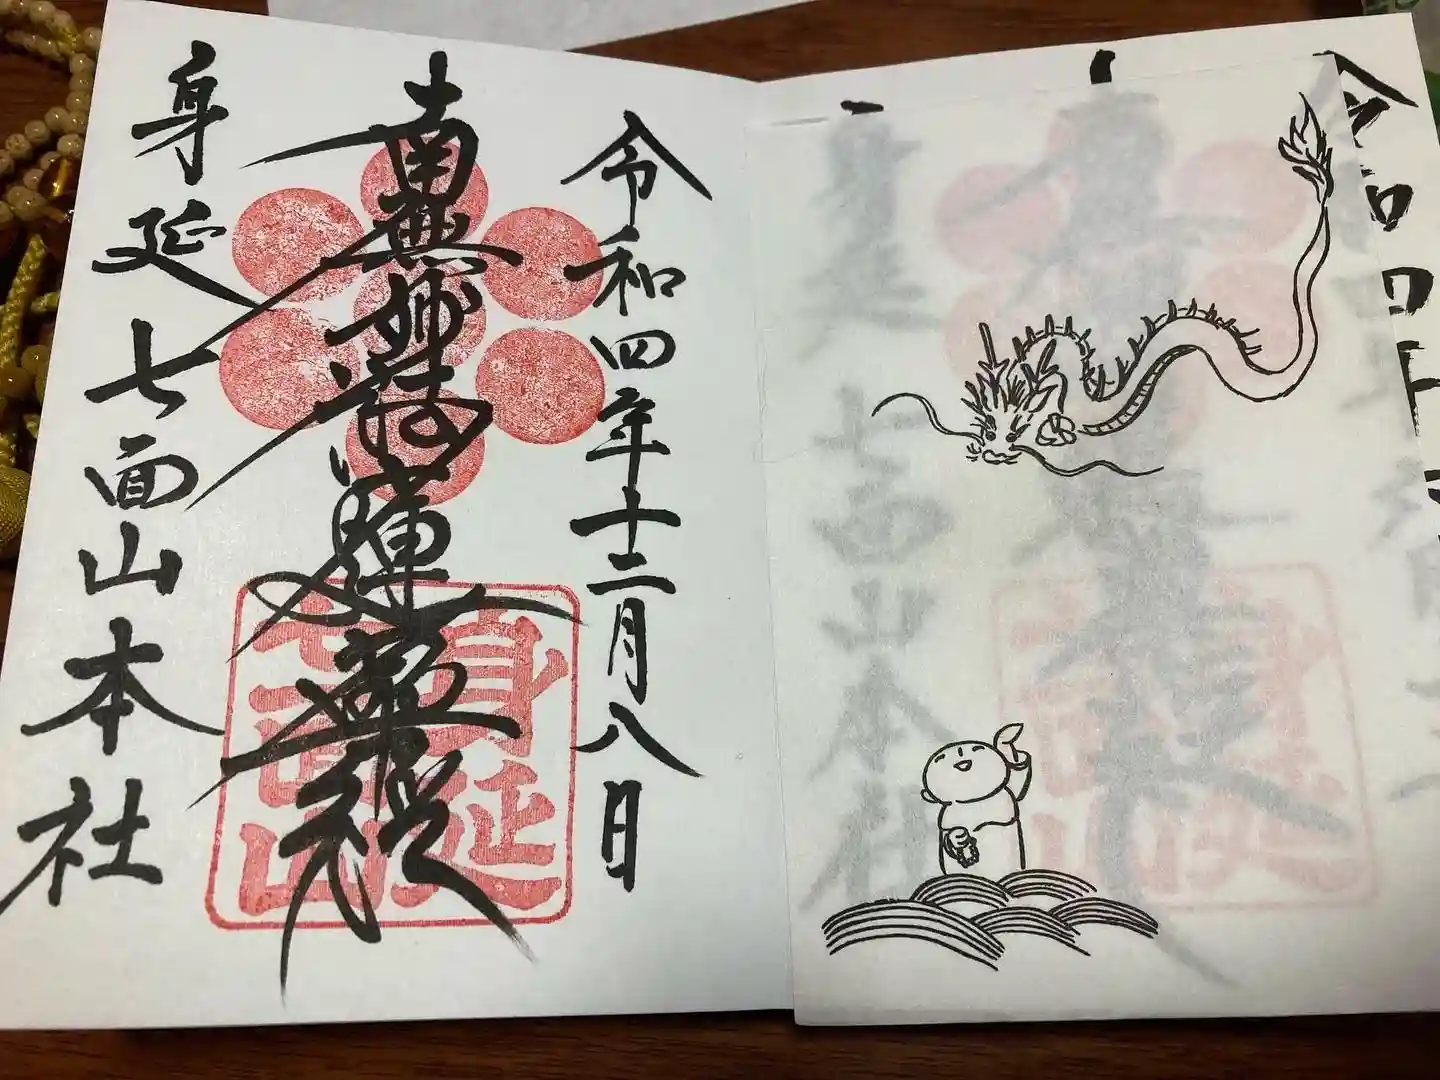 令和四年
七面山本社
令和四年十二月八日
南無妙法蓮華経
身延七面山本社
身延
七面山